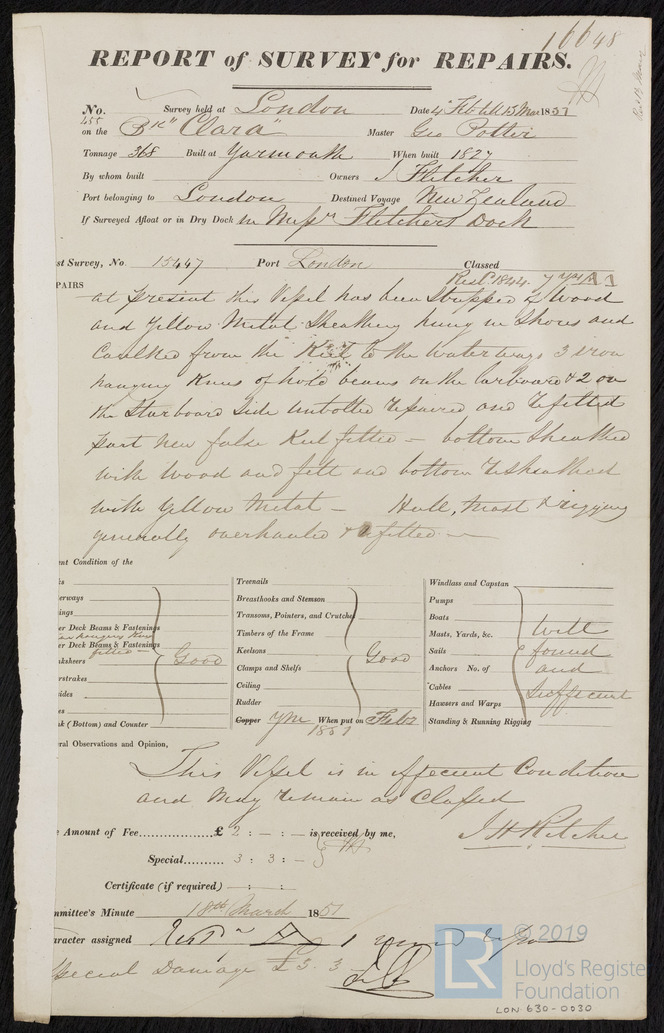 16648
REPORT of SURVEY for REPAIRS.
No. 455 Survey held at London Date 4 Feb till 13 Mar 1851
on the Bk "Clara" Master Geo Potter
Tonnage 368 Built at Yarmouth When built 1827
By whom built Owners J Fletcher
Port belonging to London Destined Voyage New Zealand
If Surveyed Afloat or in Dry Dock in Messrs Fletchers Dock
st Survey, No. 15447 Port London Classed
Rest. 1844 7 yrs A 1
PAIRS
at present this Vessel has been Stripped of Wood
and Yellow Metal Sheathing hung in Shores and
Caulked from the Keel to the Waterways 3 iron
hanging Knees of hold beams on the larboard & 2 on
the Starboard Side unbolted repaired and refitted
part new false Keel fitted – bottom Sheathed
with Wood and felt and bottom resheathed
with Yellow Metal – Hull, Mast & rigging
generally overhauled & refitted –
ent Condition of the
ks
erways
ings
er Deck Beams & Fastenings
hanging Knees
er Deck Beams & Fastenings
fitted –
nksheers Good
erstrakes
sides
es
nk (Bottom) and Counter
Treenails
Breasthooks and Stemson
Transoms, Pointers, and Crutches
Timbers of the Frame
Keelsons Good
Clamps and Shelfs
Ceiling
Rudder
Copper YM When put on Feby
1851
Windlass and Capstan
Pumps
Boats
Masts, Yards, &c. Well
Sails found
Anchors No. of and
Cables Sufficient
Hawsers and Warps
Standing & Running Rigging
eral Observations and Opinion,
This Vessel is in efficient Condition
and May remain as Classed
e Amount of Fee............... £ 2 : – : – is received by me,
Special.......... 3 : 3 : –
Certificate (if required) – : – : –
mmittee's Minute 18th March 1851
aracter assigned
Special Damage £3. 3
© 2019
LR
Lloyd's Register
Foundation
LON 630-0030